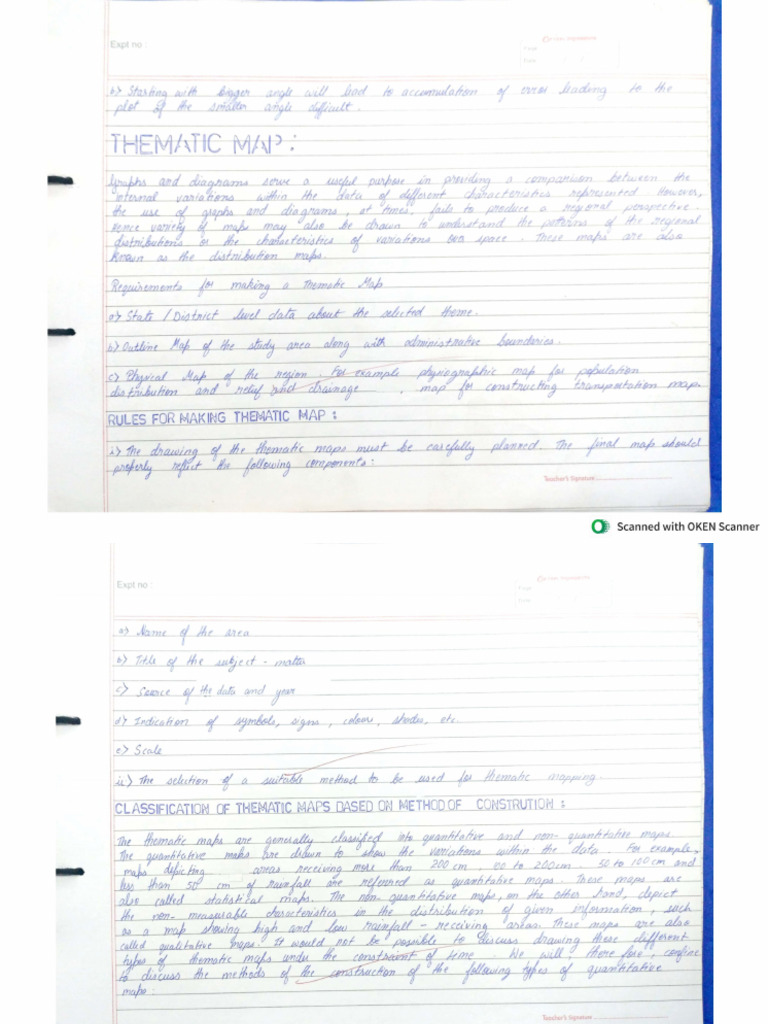 Expt no :
Page
Date
b) Starting with bigger angle will lead to accumulation of error leading to the
plot of the smaller angle difficult.
THEMATIC MAP :
Graphs and diagrams serve a useful purpose in providing a comparison between the
internal variations within the data of different characteristics represented. However,
the use of graphs and diagrams, at times, fails to produce a regional perspective.
Hence variety of maps may also be drawn to understand the patterns of the regional
distributions or the characteristics of variations over space. These maps are also
known as the distribution maps.
Requirements for making a Thematic Map
a) State / District level data about the selected theme.
b) Outline Map of the study area along with administrative boundaries.
c) Physical Map of the region. For example physiographic map for population
distribution and relief and drainage , map for constructing transportation map.
RULES FOR MAKING THEMATIC MAP :
i) The drawing of the thematic maps must be carefully planned. The final map should
properly reflect the following components :
Teacher's Signature
Scanned with OKEN Scanner
Expt no :
Page
Date
a) Name of the area
b) Title of the subject - matter
c) Source of the data and year
d) Indication of symbols, signs, colours, shades, etc.
e) Scale
ii) The selection of a suitable method to be used for thematic mapping.
CLASSIFICATION OF THEMATIC MAPS BASED ON METHOD OF CONSTRUTION :
The thematic maps are generally classified into quantitative and non-quantitative maps.
The quantitative maps are drawn to show the variations within the data. For example,
maps depicting areas receiving more than 200 cm, 100 to 200cm, 50 to 100 cm and
less than 50 cm of rainfall are referred as quantitative maps. These maps are
also called statistical maps. The non-quantitative maps, on the other hand, depict
the non-measurable characteristics in the distribution of given information, such
as a map showing high and low rainfall - receiving areas. These maps are also
called qualitative maps. It would not be possible to discuss drawing these different
types of thematic maps under the constraint of time. We will, there fore, confine
to discuss the methods of the construction of the following types of quantitative
maps :
Teacher's Signature